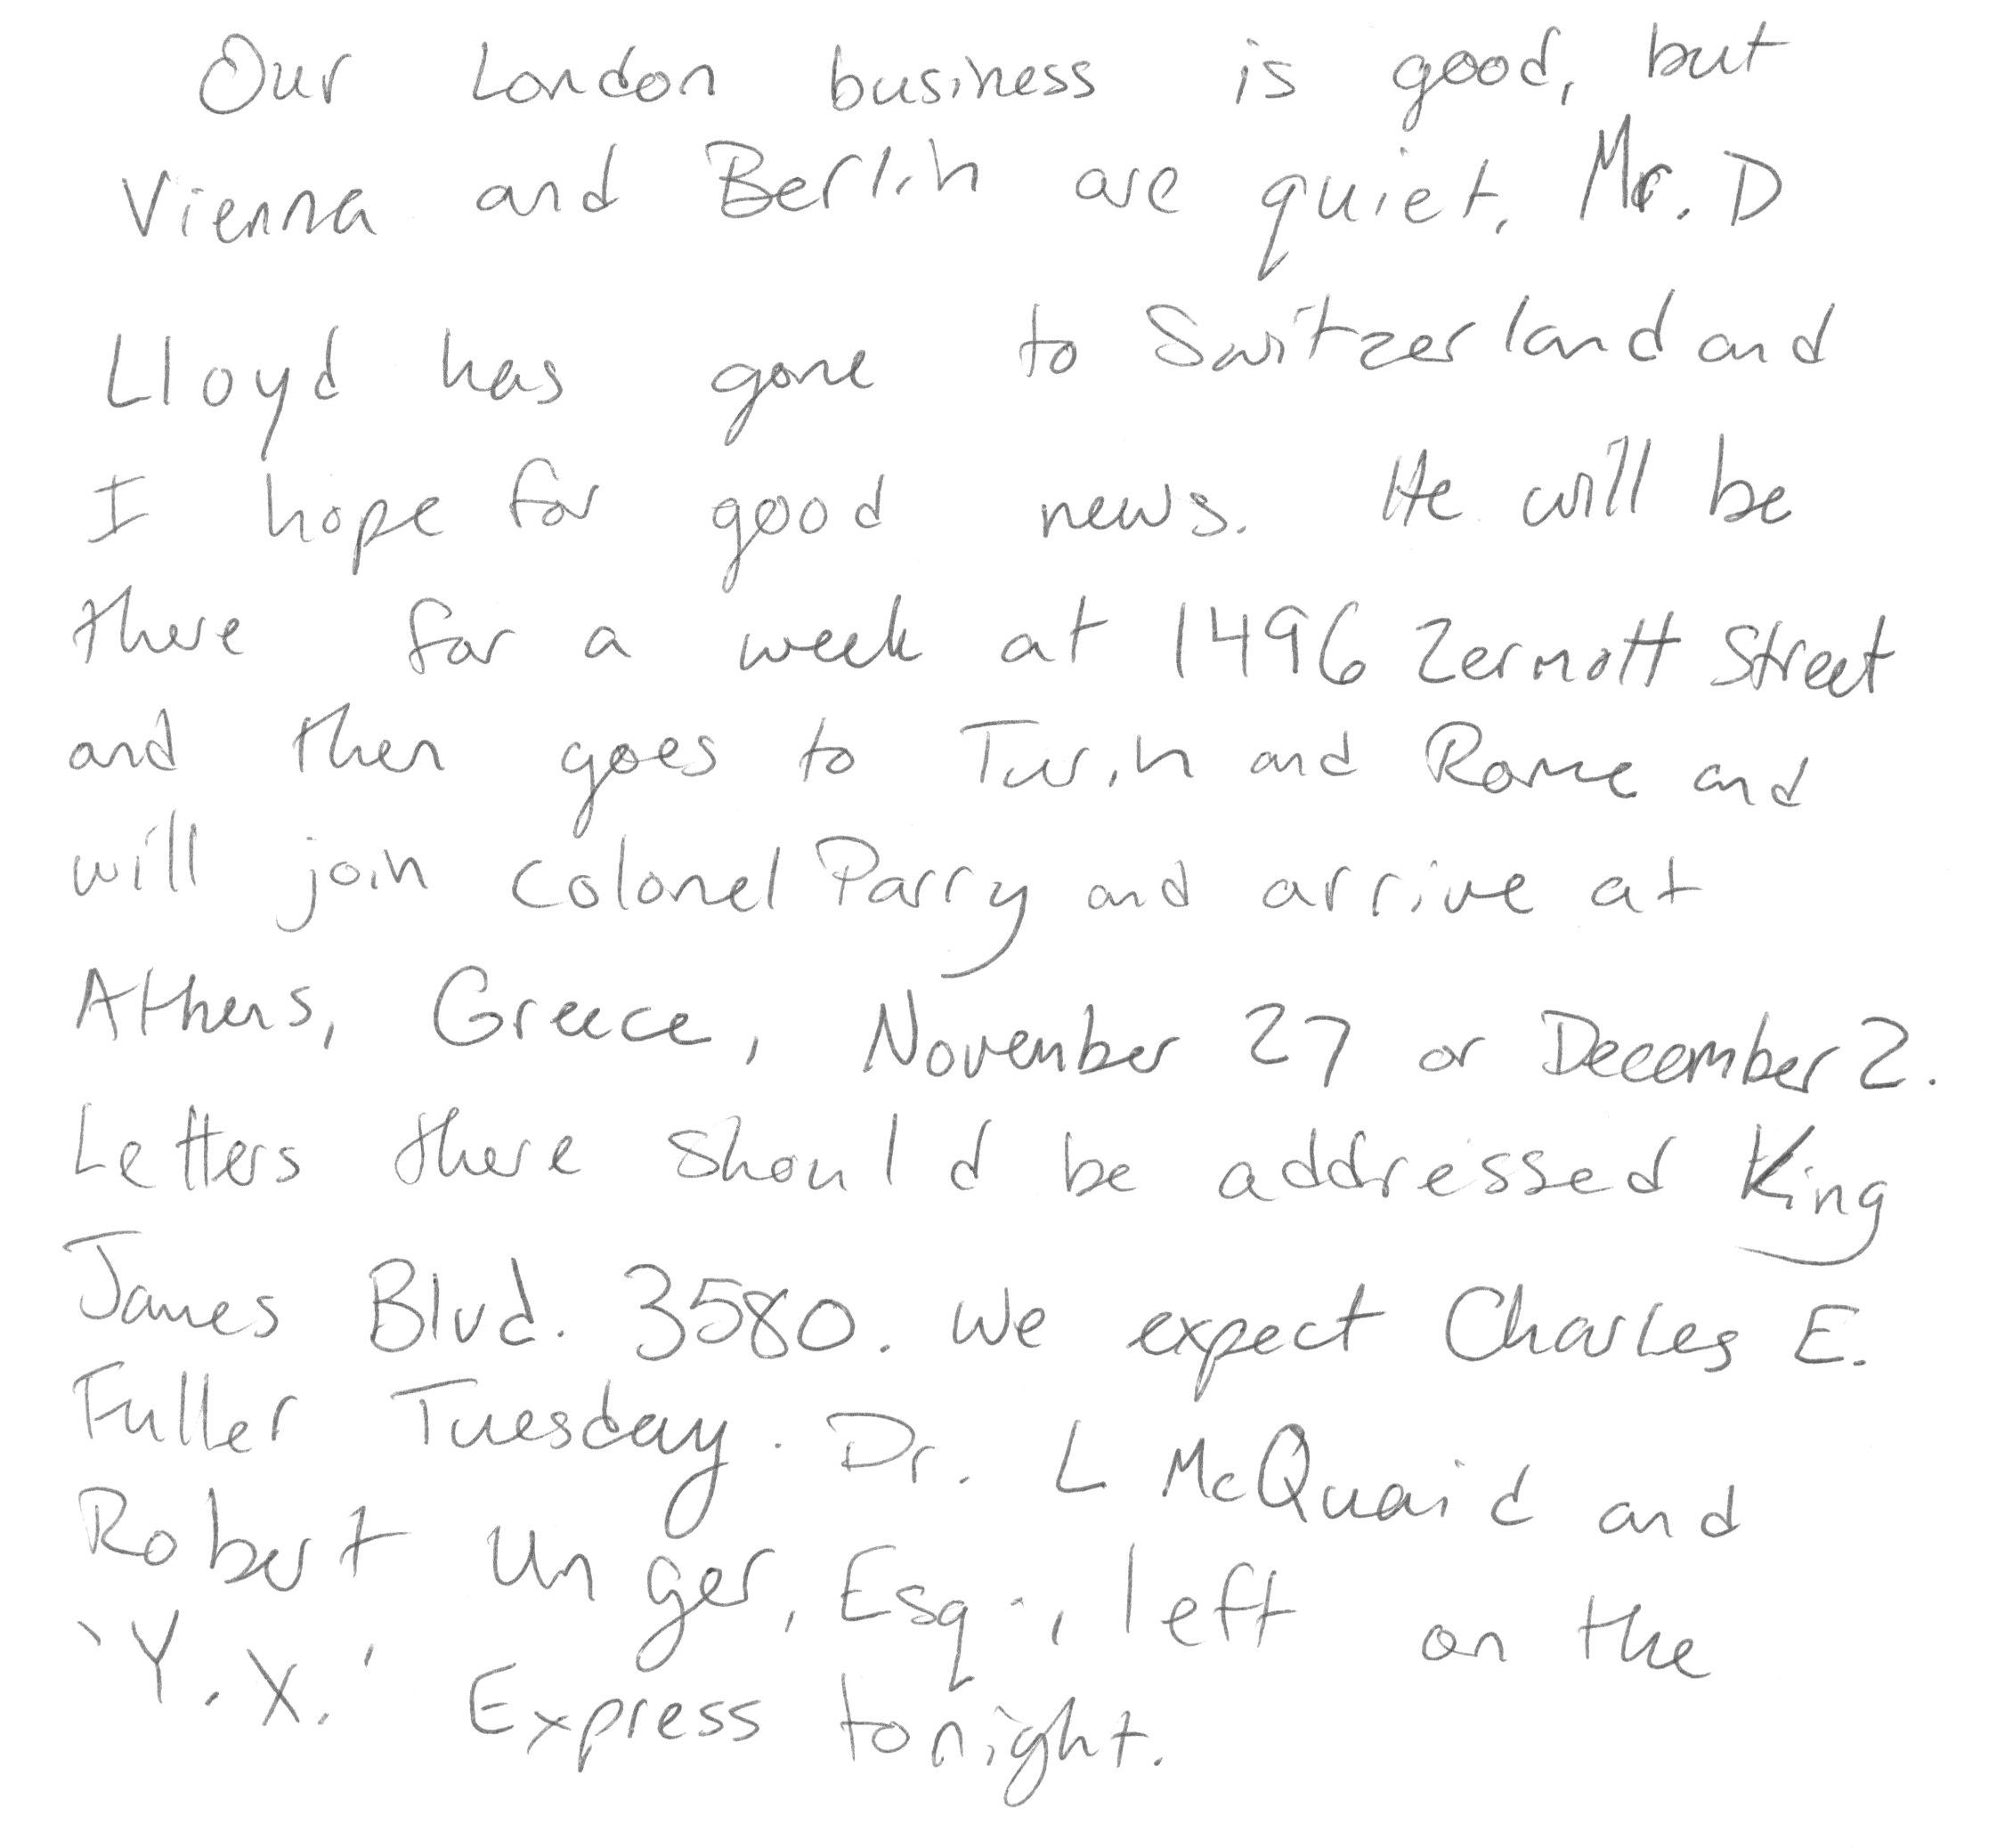 Our London business is good, but
Vienna and Berlin are quiet. Mr. D
Lloyd has gone to Switzerland and
I hope for good news. He will be
there for a week at 1496 Zermott Street
and then goes to Turin and Rome and
will join Colonel Parry and arrive at
Athens, Greece, November 27 or December 2.
Letters there should be addressed King
James Blvd. 3580. We expect Charles E.
Fuller Tuesday. Dr. L McQuaid and
Robert Unger, Esq., left on the
'Y.X.' Express tonight.